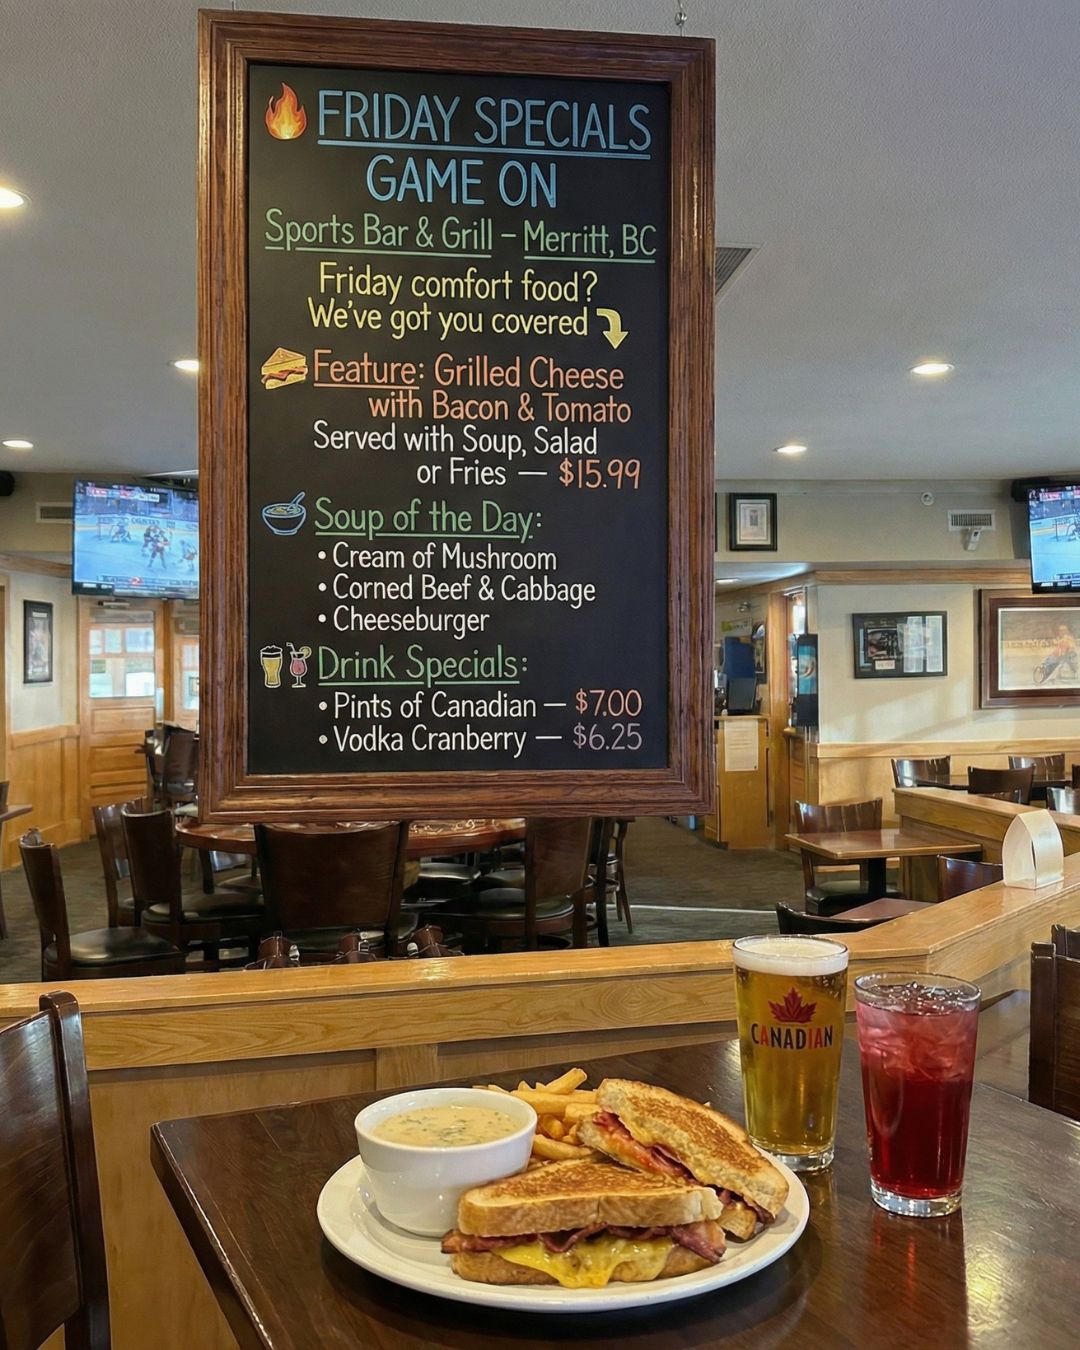 FRIDAY SPECIALS
GAME ON
Sports Bar & Grill – Merritt, BC
Friday comfort food?
We've got you covered
Feature: Grilled Cheese
with Bacon & Tomato
Served with Soup, Salad
or Fries — $15.99
Soup of the Day:
• Cream of Mushroom
• Corned Beef & Cabbage
• Cheeseburger
Drink Specials:
• Pints of Canadian — $7.00
• Vodka Cranberry — $6.25
CANADIAN